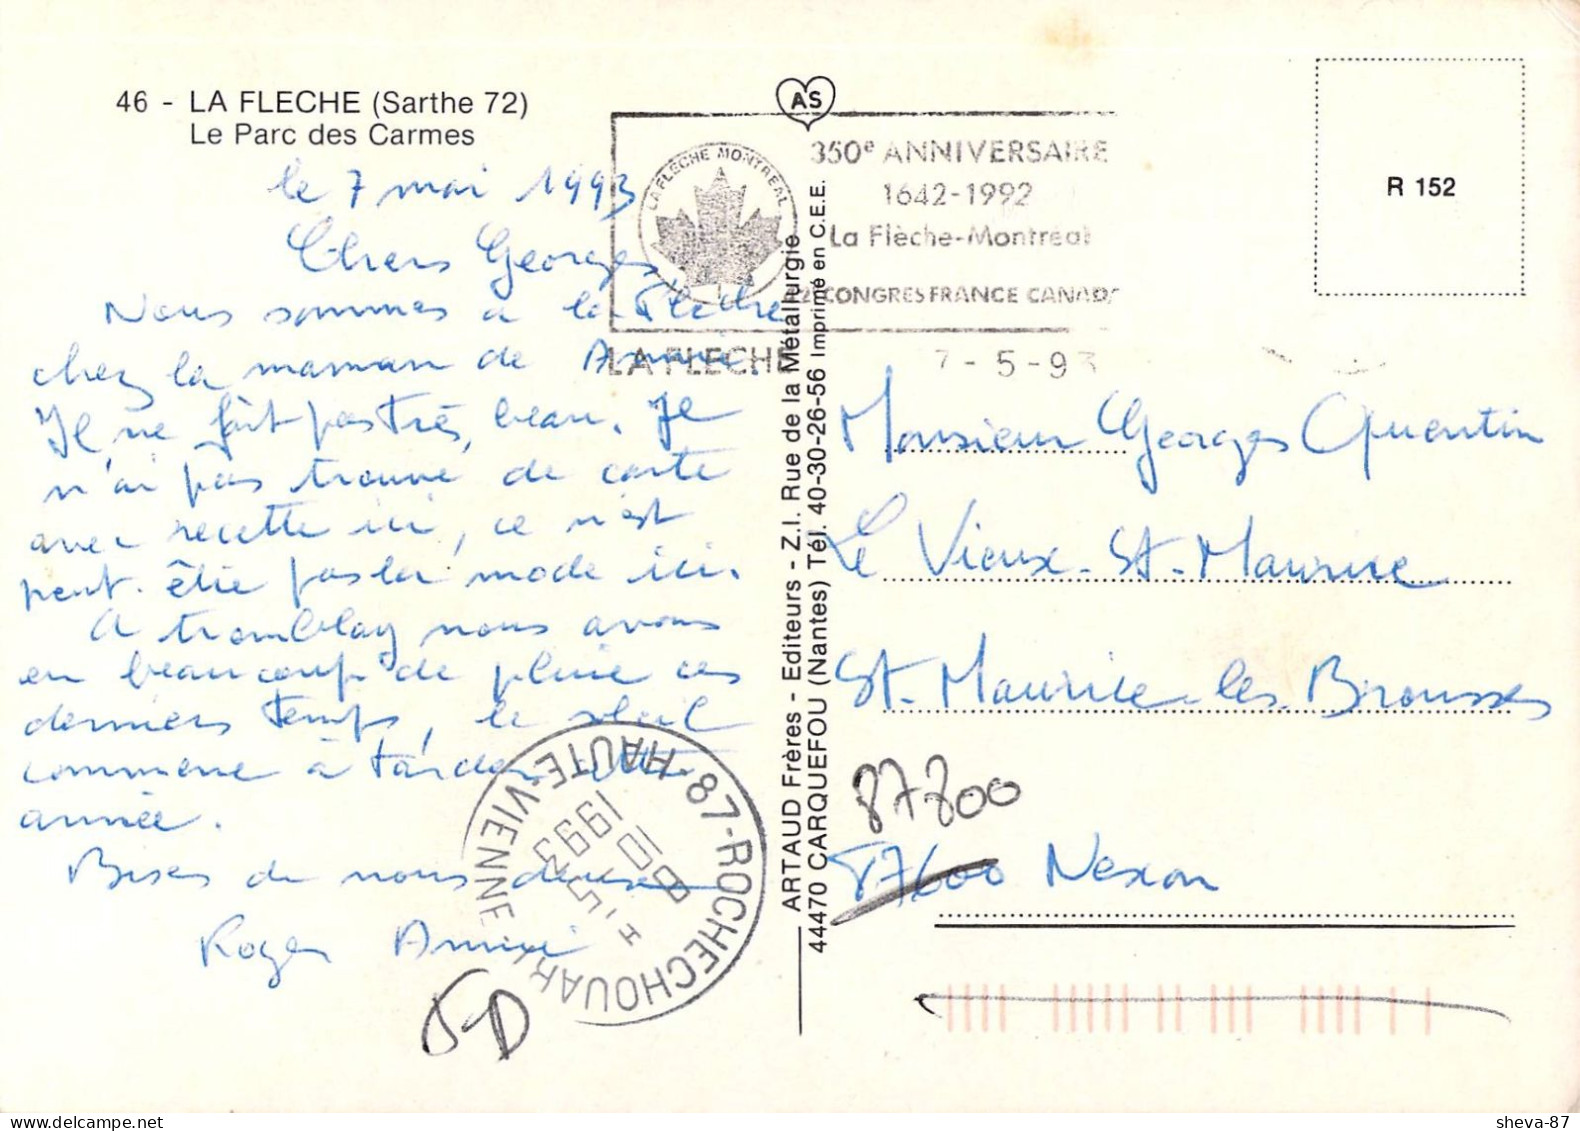 46 - LA FLECHE (Sarthe 72)
Le Parc des Carmes
le 7 mai 1993
Chers Georges
Nous sommes à la Flèche
chez la maman de Annie.
Il ne fait pas très beau. Je
n'ai pas trouvé de carte
avec recette ici, ce n'est
peut-être pas la mode ici.
A tremblay nous avons
eu beaucoup de pluie ces
derniers temps, le soleil
commence à tarder cette
année.
Bises de nous deux
Roger Annie
AS
LA FLECHE MONTREAL
350e ANNIVERSAIRE
1642-1992
La Flèche-Montréal
CONGRES FRANCE CANADA
LA FLECHE 7-5-93
ARTAUD Frères - Editeurs - Z.I. Rue de la Métallurgie
44470 CARQUEFOU (Nantes) Tél. 40-30-26-56 Imprimé en C.E.E.
R 152
Monsieur Georges Quentin
Le Vieux-St-Maurice
St-Maurice-les-Brousses
87800
87600 Nexon
87-ROCHECHOUART
HAUTE-VIENNE
10 H
1993
sheva-87